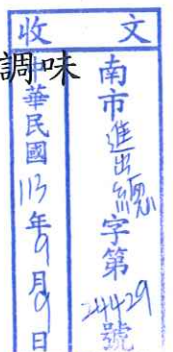 收文
調味
南市進出總字第24429號
中華民國113年9月9日